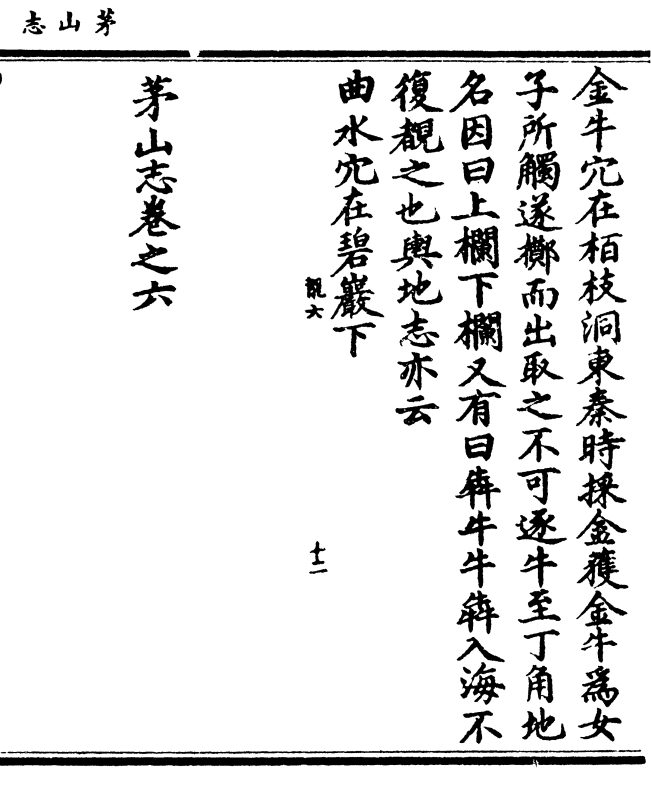 茅山志
金牛穴在栢枝洞東秦時採金獲金牛為女
子所觸遂擲而出取之不可逐牛至丁角地
名因曰上欄下欄又有曰犇牛牛犇入海不
復覩之也輿地志亦云
曲水穴在碧巖下
覩六
十二
茅山志卷之六